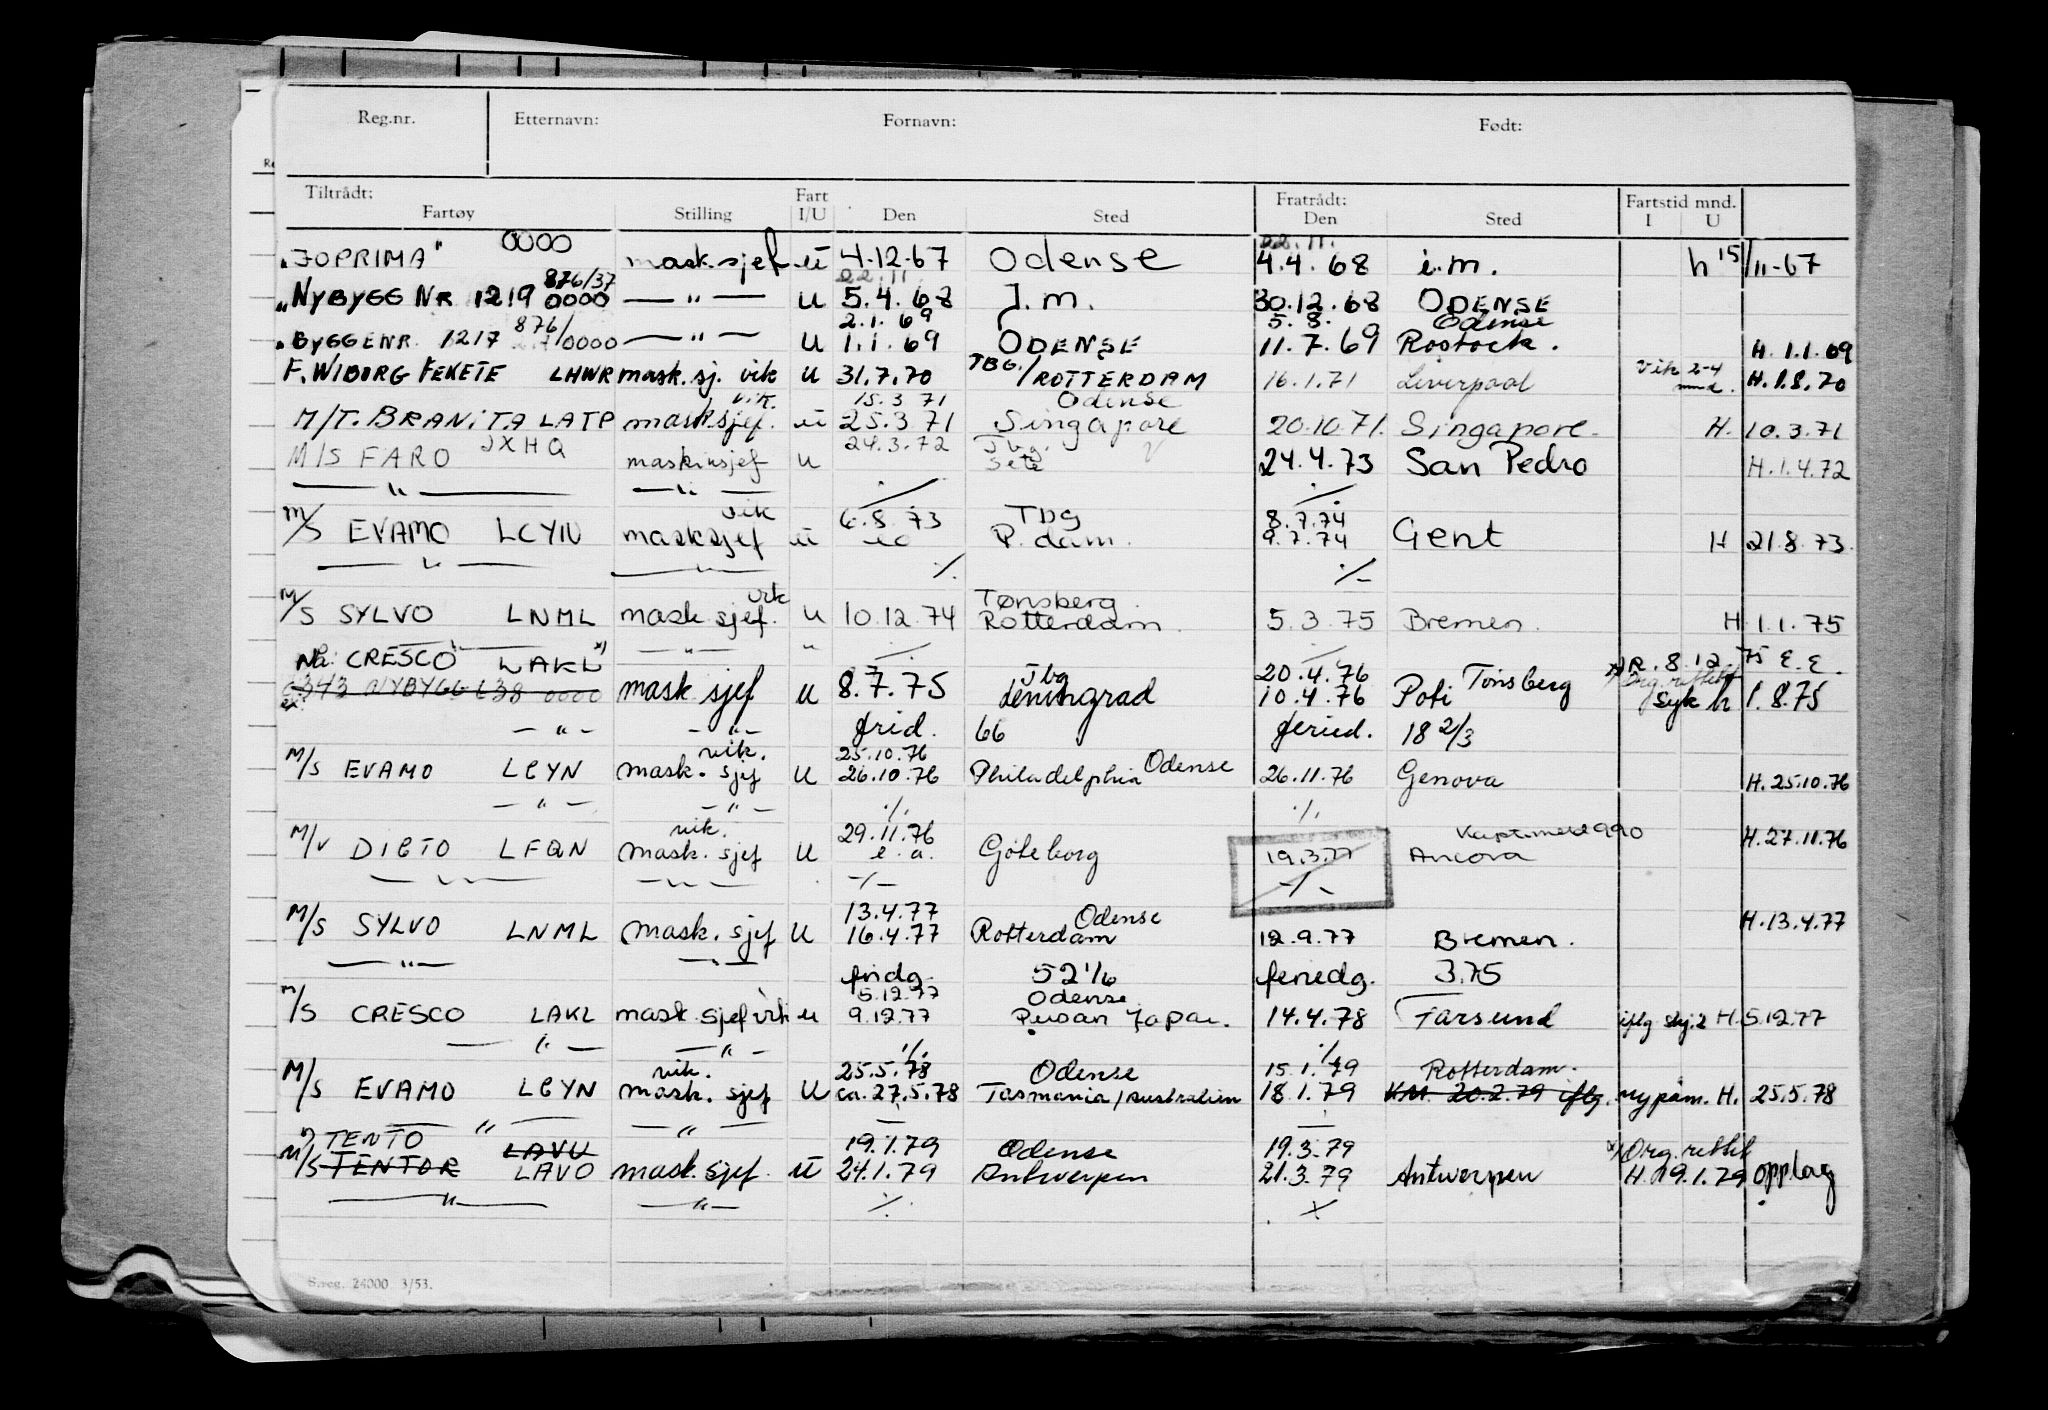 Reg.nr. Etternavn: Fornavn: Født:
Tiltrådt: Fart Fratrådt: Fartstid mnd.
Fartøy Stilling I/U Den Sted Den Sted I U
0000 22.11.
"JOPRIMA" mask.sjef u 4.12.67 Odense 4.4.68 i.m. h 15/11-67
876/37 22.11
"NYBYGG NR 1219 0000 — " — u 5.4.68 J.m. 30.12.68 ODENSE
876/ 2.1.69 5.8. Odense
"BYGGENR. 1217 /0000 — " — u 1.1.69 ODENSE 11.7.69 Rostock. H.1.1.69
F. WIBORG FEKETE LHWR mask.sj. vik u 31.7.70 TBG./ROTTERDAM 16.1.71 Liverpool vik 2-4 mnd. H.1.8.70
vik. 15.3 71 Odense
M/T. BRANITA LATP mask.sjef. u 25.3 71 Singapore 20.10.71. Singapore. H. 10.3.71
JXHQ 24.3.72 Tbg.
M/S FARO maskinsjef u Sete 24.4.73 San Pedro H.1.4.72
— " — — " — ./. ./.
vik 6.8.73 Tbg 8.7.74
M/S EVAMO LCYN masksjef u P.dam. 9.7.74 Gent H 21.8.73.
— " — — " — ./. ./.
vik Tønsberg.
M/S SYLVO LNML mask sjef. u 10.12.74 Rotterdam. 5.3.75 Bremen. H.1.1.75
— " — " ./. ./.
Nå: CRESCO LAKL x) Tbg 20.4.76 Tønsberg x) R.8.12 75 E.E.
6343 NYBYGG 638 0000 mask sjef u 8.7.75 Leningrad 10.4.76 Poti syk h 1.8.75
— " — — " — frid. 66 feried. 18 2/3
vik. 25.10.76 Odense
M/S EVAMO LCYN mask. sjef u 26.10.76 Philadelphia 26.11.76 Genova H.25.10.76
— " — — " — ./. ./.
vik. 29.11.76 H.27.11.76
M/V DICTO LFQN mask. sjef u e.a. Göteborg 19.3.77 Ancona
— " — — " — -/- -/-
13.4.77 Odense H.13.4.77
M/S SYLVO LNML mask. sjef u 16.4.77 Rotterdam 12.9.77 Bremen.
— " — — " — fridg. 52 1/6 feriedg. 3.75
5.12.77 Odense
M/S CRESCO LAKL mask sjef vik u 9.12.77 14.4.78 Farsund iflg skj.2 H.5.12.77
— " — — " — ./. ./.
vik. 25.5.78 Odense 15.1.79 Rotterdam.
M/S EVAMO LCYN mask. sjef u ca.27.5.78 Tasmania/Australien 18.1.79 KM. 20.2.79 iflg. nypåm. H. 25.5.78
— " — — " — — —
x) TENTO LAVU 19.1.79 Odense 19.3.79 x) Org.rettik
M/S TENTOR LAVO mask.sjef. u 24.1.79 Antwerpen 21.3.79 Antwerpen H.19.1.79 opplag
— " — — " — ./. ./.
S.reg. 24000 3/53.